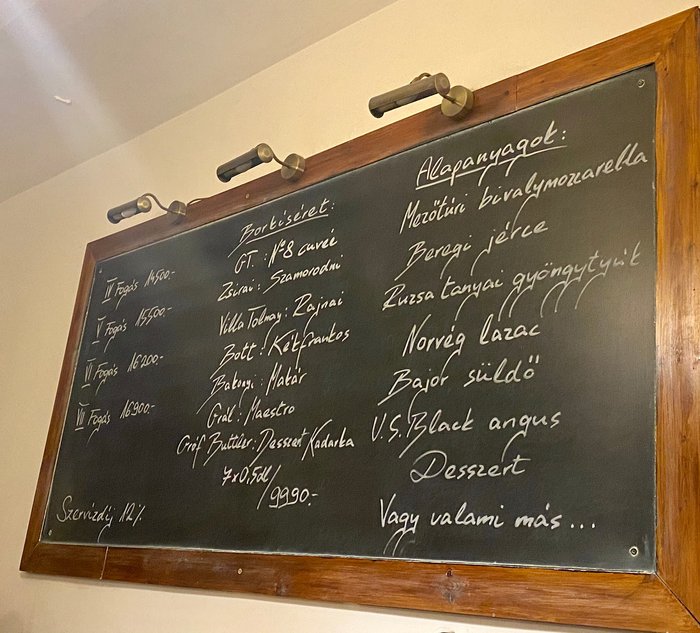 IV Fogás 14500.-
V Fogás 15500.-
VI Fogás 16200.-
VII Fogás 16900.-
Szervízdíj 12%
Borkíséret:
GT: Nº8 cuvéé
Zsirai: Szamorodni
Villa Tolnay: Rajnai
Bott: Kékfrankos
Bakonyi: Makár
Grál: Maestro
Gróf Buttler: Desszert Kadarka
7x0,5dl/9990.-
Alapanyagok:
Mezőtúri bivalymozzarella
Beregi jérce
Ruzsa tanyai gyöngytyúk
Norvég lazac
Bajor süldő
U.S. Black angus
Desszert
Vagy valami más...